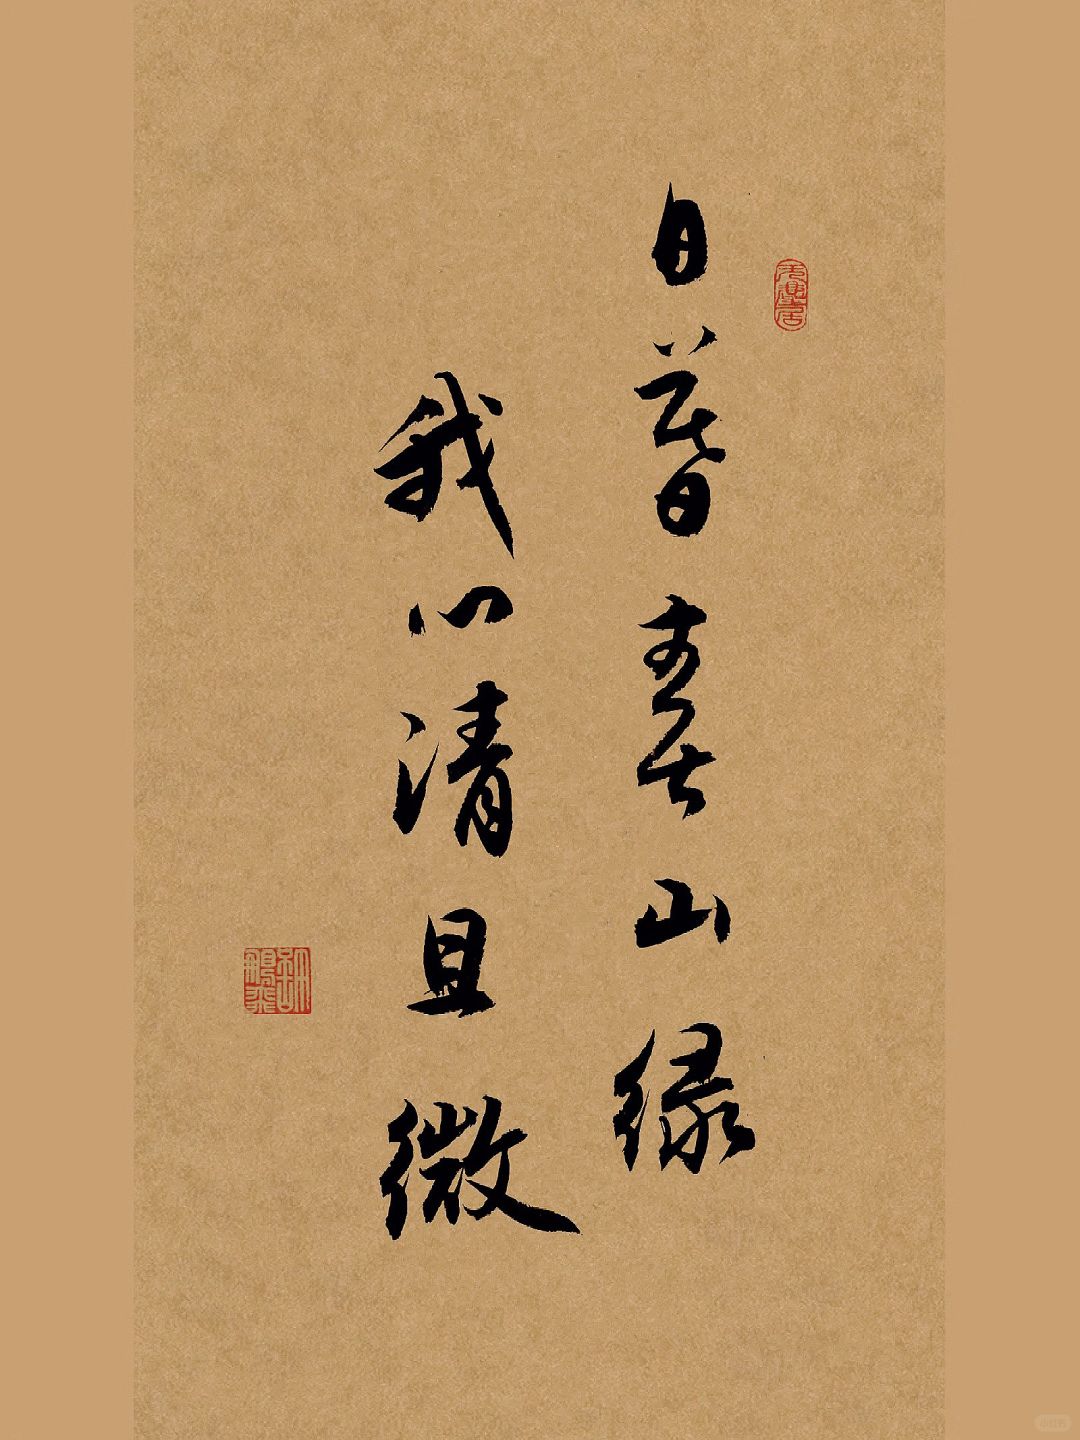 日暮春山绿
我心清且微